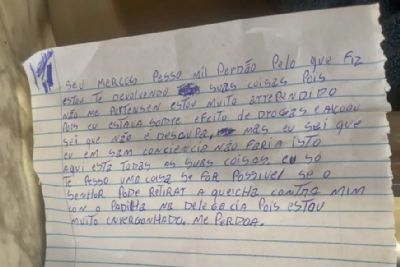 SEU MERCOS PESSO MIL PERDÃO PELO QUE FIZ
ESTOU TE DEVOLVENDO SUAS COISAS POIS
NÃO ME PERTENSEN ESTOU MUITO ARREPENDIDO
POIS EU ESTAVA SOBRE EFEITO DE DROGAS E ALCOOU
SEI QUE NÃO É DESCUPA, MAS EU SEI QUE
EU EM SAM CONCIENCIA NÃO FARIA ISTO
AQUI ESTÁ TODAS AS SUAS COISAS. EU SO
TE PESSO UMA COISA SE FOR POSSIVEL SE O
SENHOR PODE RETIRAR A QUEICHA CONTRA MIM
CON O PADILHA NA DELEGACIA POIS ESTOU
MUITO ENVERGONHADO, ME PERDOA.